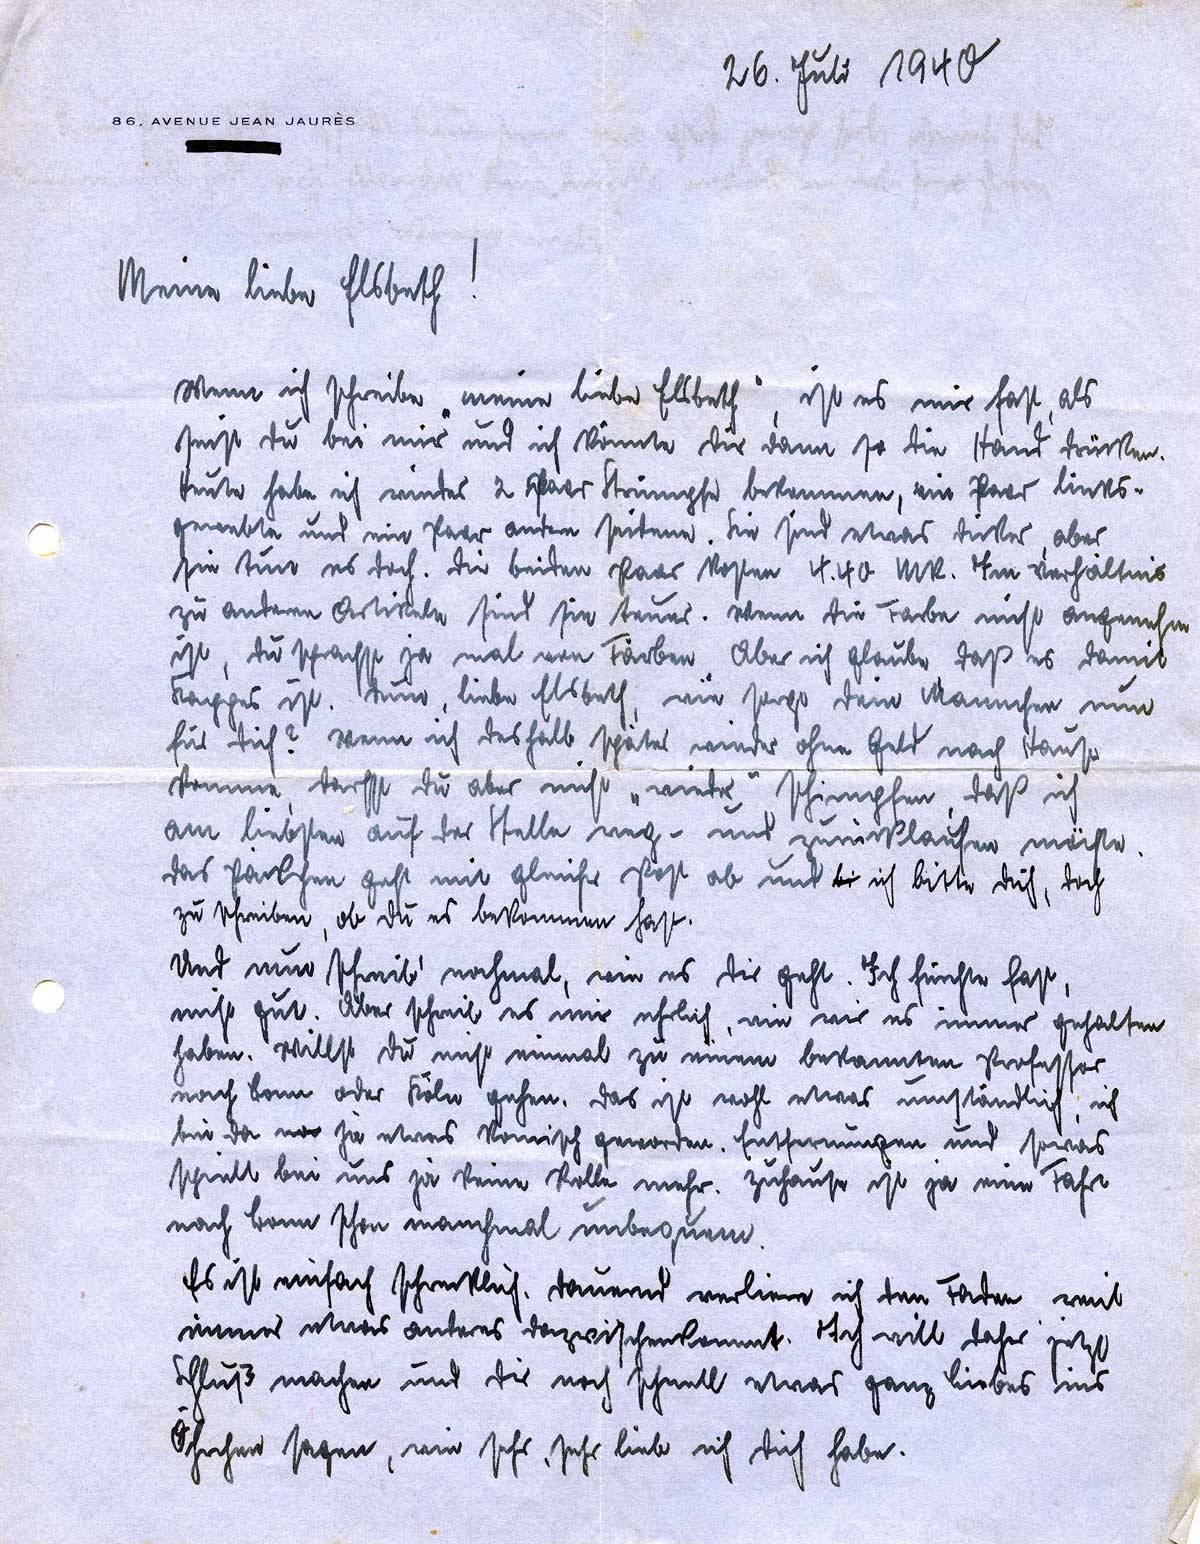 26. Juli 1940
86, AVENUE JEAN JAURÈS
Meine liebe Elsbeth!
Wenn ich schreibe „meine liebe Elsbeth", ist es mir fast, als
seist du bei mir und ich könnte dir dann so die Hand drücken.
Heute habe ich wieder 2 Paar Strümpfe bekommen, ein Paar links-
gewebte und ein Paar andere seidene. Sie sind etwas dicker, aber
sie tun es doch. Die beiden Paar kosten 4.40 MK. Im Verhältnis
zu anderen Artikeln sind sie teuer. Wenn die Farbe nicht angenehm
ist, du sprachst ja mal von Färben. Aber ich glaube daß es damit
Kappes ist. Nun, liebe Elsbeth, wie sorgt dein Männchen nun
für dich? Wenn ich deshalb später wieder ohne Geld nach Hause
komme, darfst du aber nicht „wieder" schimpfen, daß ich
am liebsten auf der Stelle weg- und zurücklaufen möchte.
Das Päckchen geht mit gleicher Post ab und ich bitte dich, doch
zu schreiben, ob du es bekommen hast.
Und nun schreib' nochmal, wie es dir geht. Ich fürchte fast,
nicht gut. Aber schreib es mir ehrlich, wie wir es immer gehalten
haben. Willst du nicht einmal zu einem bekannten Professor
nach Bonn oder Köln gehen. Das ist wohl etwas umständlich, ich
bin da ja etwas komisch geworden. Entfernungen und sowas
spielt bei uns ja keine Rolle mehr. Zuhause ist ja eine Fahrt
nach Bonn schon manchmal unbequem.
Es ist einfach schrecklich. Dauernd verliere ich den Faden weil
immer etwas anderes dazwischenkommt. Ich will daher jetzt
Schluß machen und dir noch schnell etwas ganz liebes ins
Öhrchen sagen, wie sehr, sehr lieb ich dich habe.